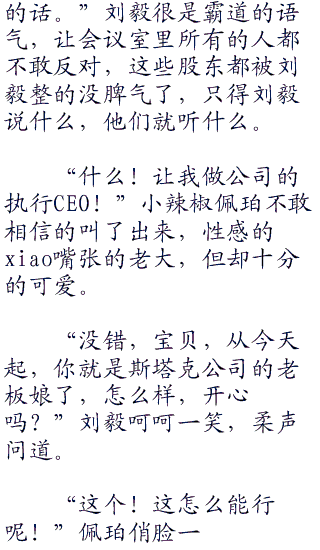 的话。”刘毅很是霸道的语
气，让会议室里所有的人都
不敢反对，这些股东都被刘
毅整的没脾气了，只得刘毅
说什么，他们就听什么。
“什么！让我做公司的
执行CEO！”小辣椒佩珀不敢
相信的叫了出来，性感的
xiao嘴张的老大，但却十分
的可爱。
“没错，宝贝，从今天
起，你就是斯塔克公司的老
板娘了，怎么样，开心
吗？”刘毅呵呵一笑，柔声
问道。
“这个！这怎么能行
呢！”佩珀俏脸一